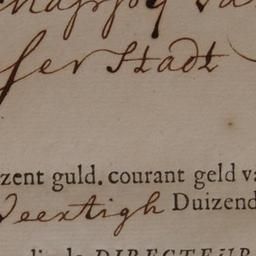 ser Stadt
zent guld. courant geld va
Veertigh Duizend
DIRECTEUR